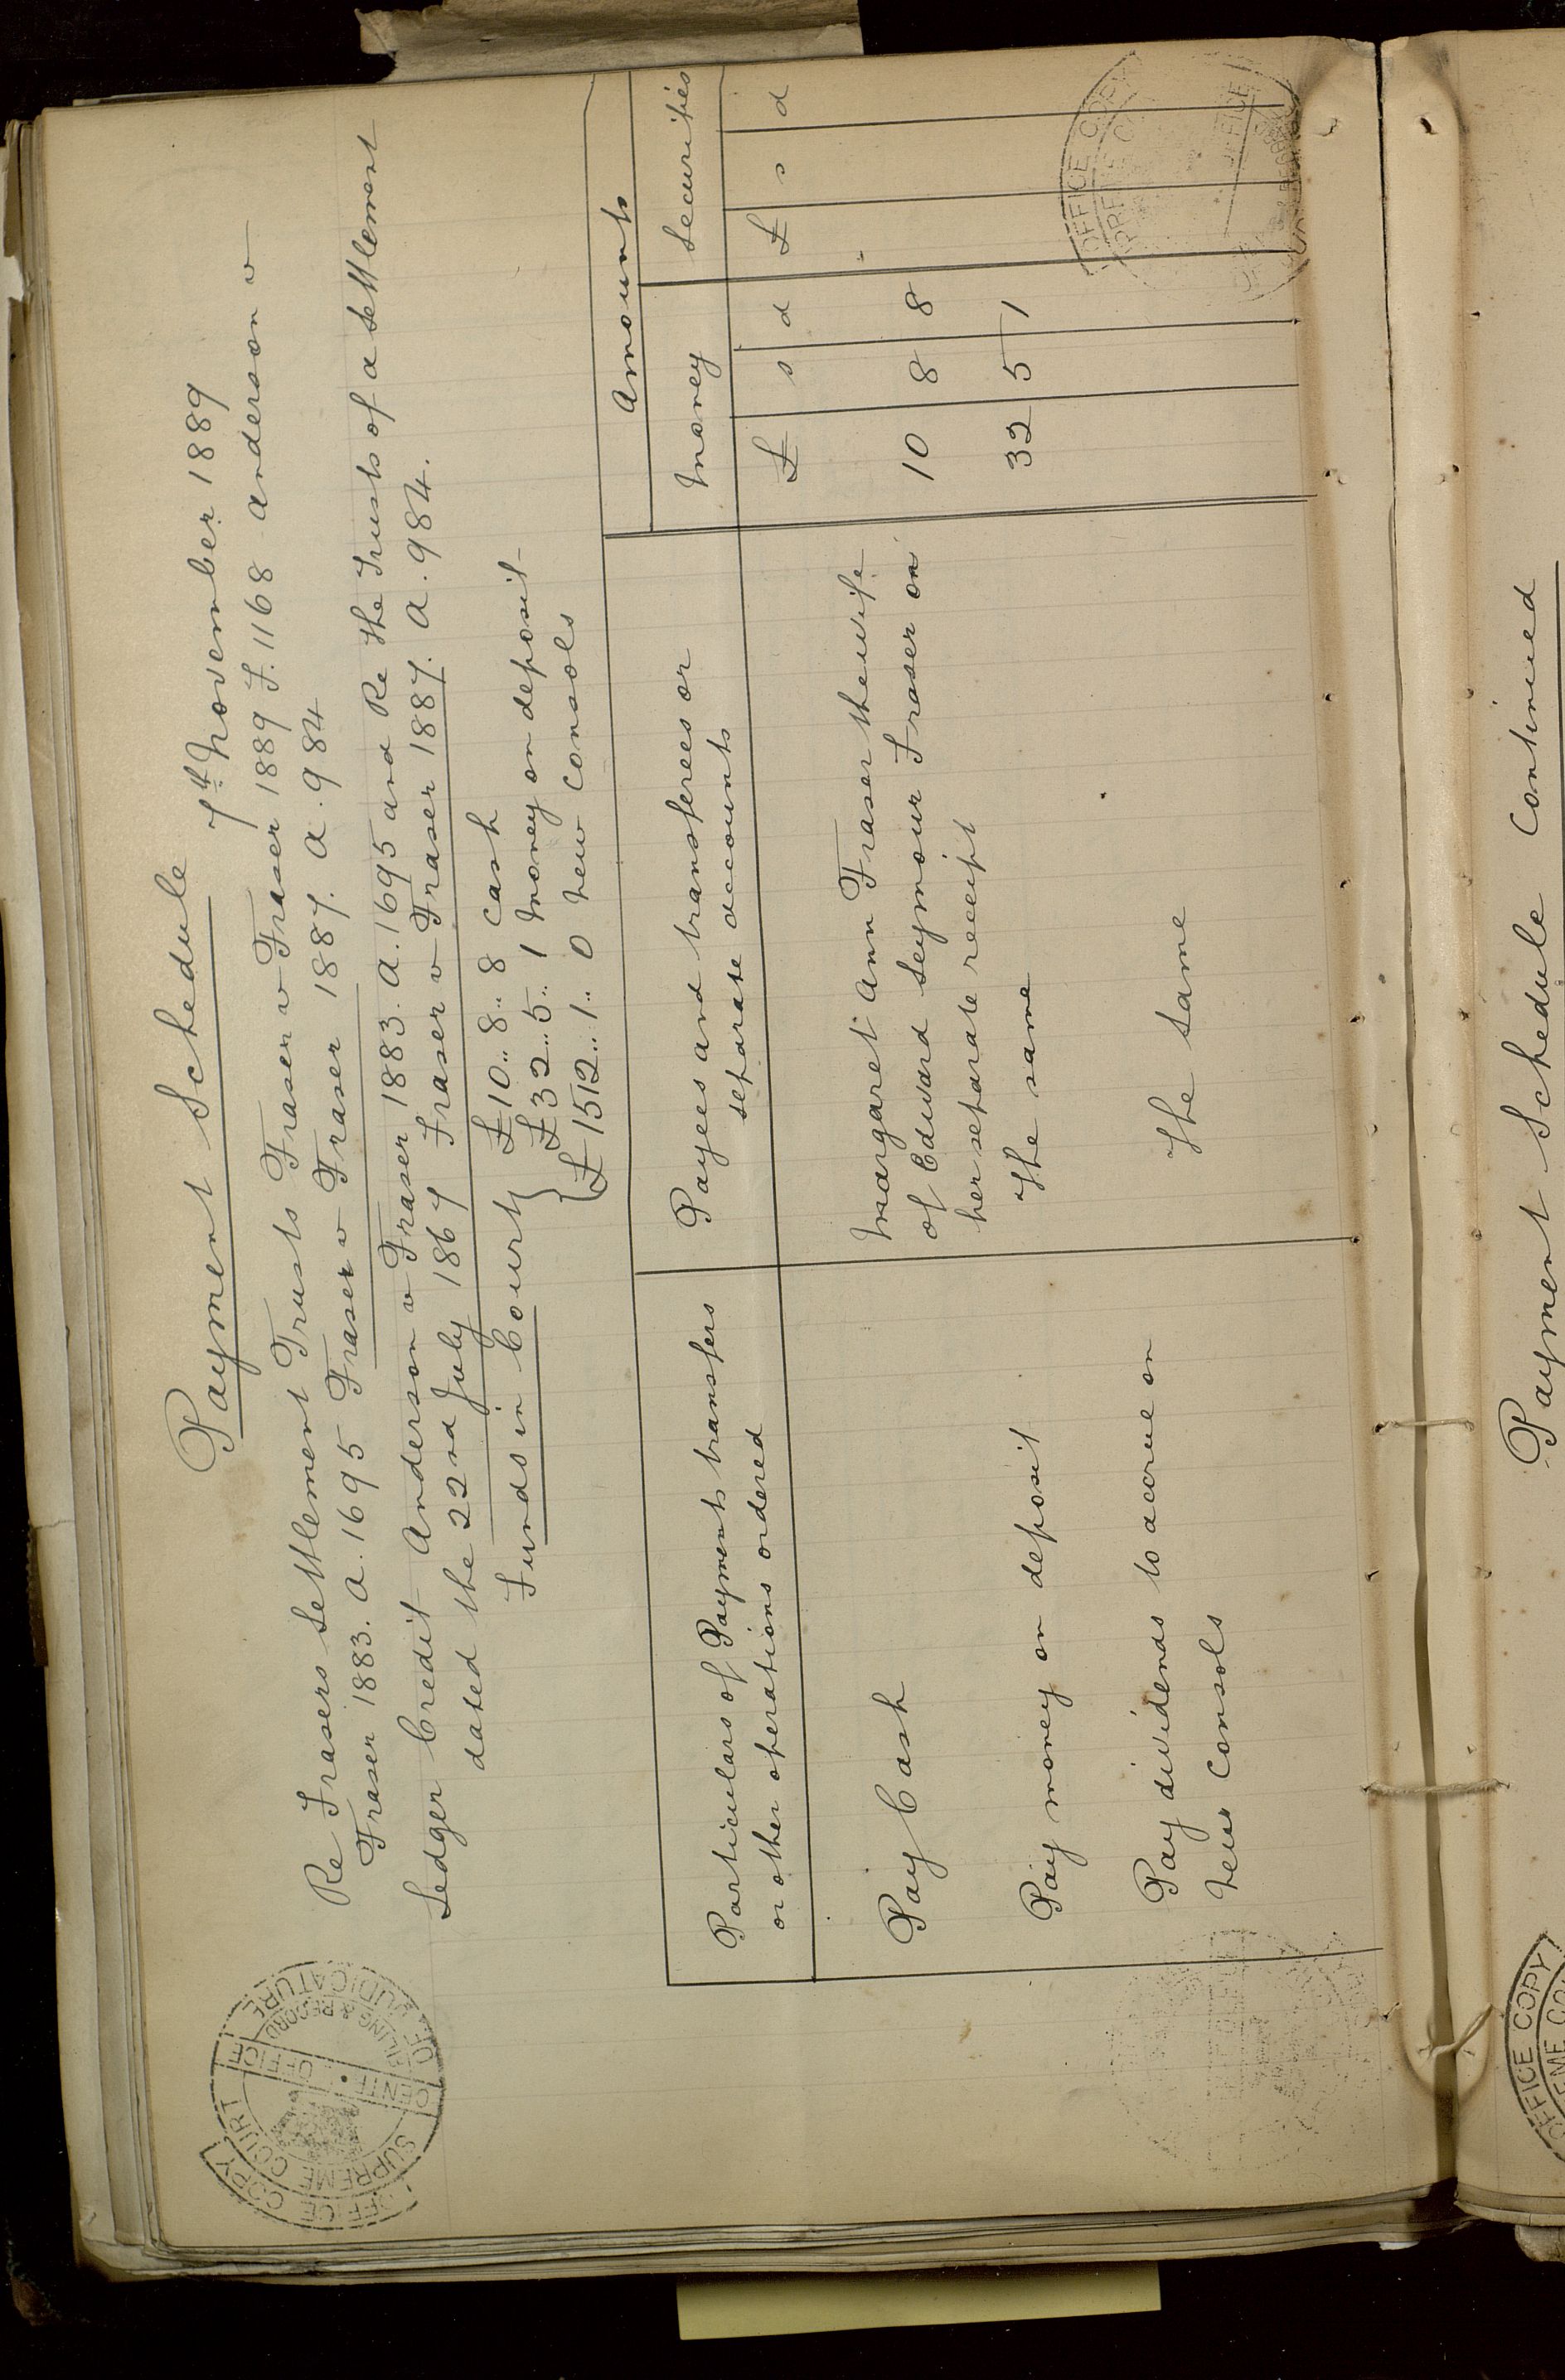 Payment Schedule
7th November 1889
Re Frasers Settlement Trusts Fraser v Fraser 1889 F. 1168 Anderson v
Fraser 1883. A. 1695 Fraser v Fraser 1887. A. 984
Ledger Credit Anderson v Fraser 1883. A. 1695 and Re the Trusts of a settlement
dated the 22nd July 1867 Fraser v Fraser 1887. A. 984.
Funds in Court { £10..8..8 Cash
£32..5..1 Money on deposit
£1512..1..0 New Consols
Particulars of Payments transfers
or other operations ordered
Payees and transferees or
separate accounts
Amounts
Money
Securities
£ s d £ s d
Pay Cash
Margaret Ann Fraser the wife
of Edward Seymour Fraser on
her separate receipt
10 8 8
Pay money on deposit
The same
32 5 1
Pay dividends to accrue on
New Consols
The same
OFFICE COPY
SUPREME COURT OF JUDICATURE
CENTRAL OFFICE
FILING & RECORD
OFFICE COPY
OFFICE
Payment Schedule Continued
OFFICE COPY